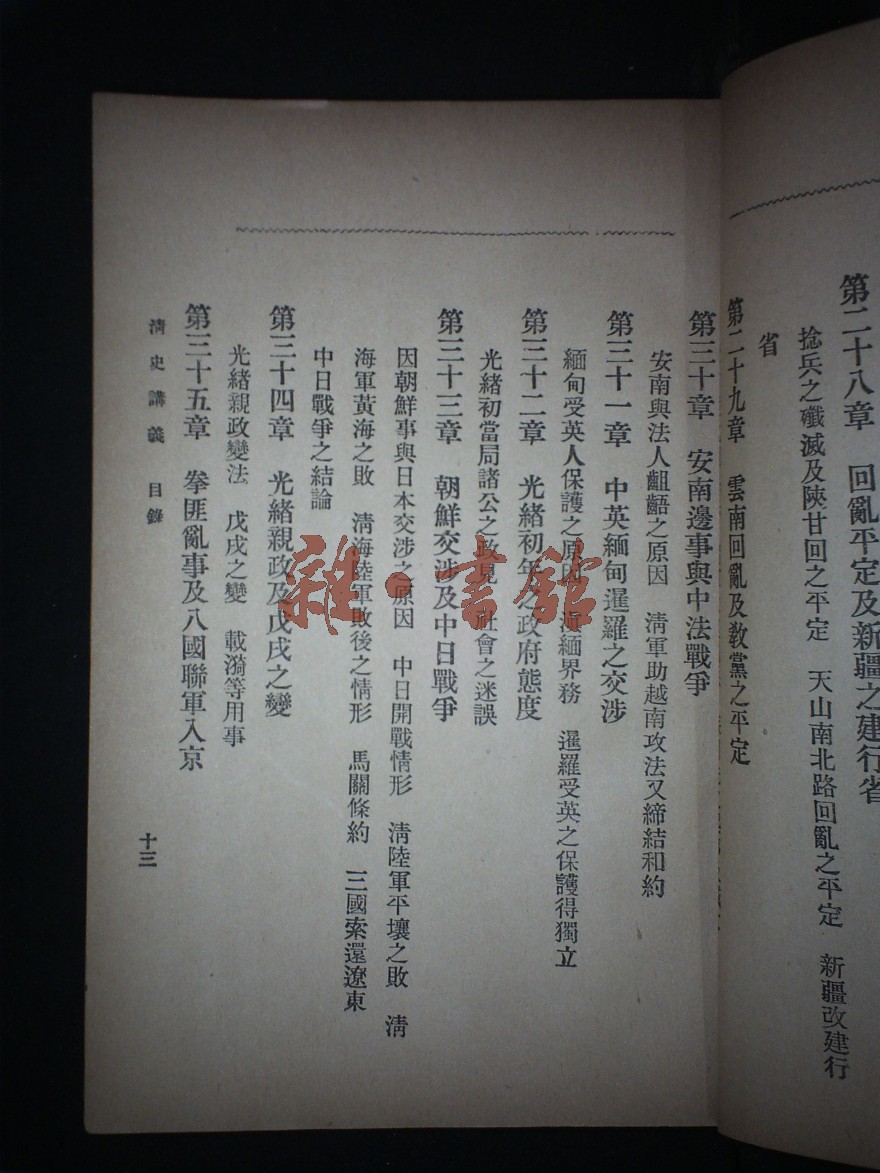 第二十八章　回亂平定及新疆之建行省
捻兵之殲滅及陝甘回之平定　天山南北路回亂之平定　新疆改建行
省
第二十九章　雲南回亂及教黨之平定
第三十章　安南邊事與中法戰爭
安南與法人齟齬之原因　淸軍助越南攻法又締結和約
第三十一章　中英緬甸暹羅之交涉
緬甸受英人保護之原因　滇緬界務　暹羅受英之保護得獨立
第三十二章　光緖初年之政府態度
光緖初當局諸公之政見　社會之迷誤
第三十三章　朝鮮交涉及中日戰爭
因朝鮮事與日本交涉之原因　中日開戰情形　淸陸軍平壤之敗　淸
海軍黃海之敗　淸海陸軍敗後之情形　馬關條約　三國索還遼東
中日戰爭之結論
第三十四章　光緖親政及戊戌之變
光緖親政變法　戊戌之變　載漪等用事
第三十五章　拳匪亂事及八國聯軍入京
淸史講義　目錄
十三
雜·書館